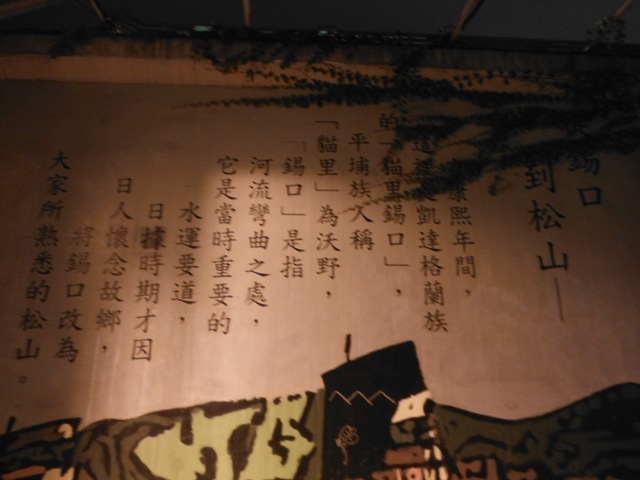 錫口
到松山——
康熙年間，
這裡是凱達格蘭族
的「貓里錫口」，
平埔族人稱
「貓里」為沃野，
「錫口」是指
河流彎曲之處，
它是當時重要的
水運要道，
日據時期才因
日人懷念故鄉，
將錫口改為
大家所熟悉的松山。